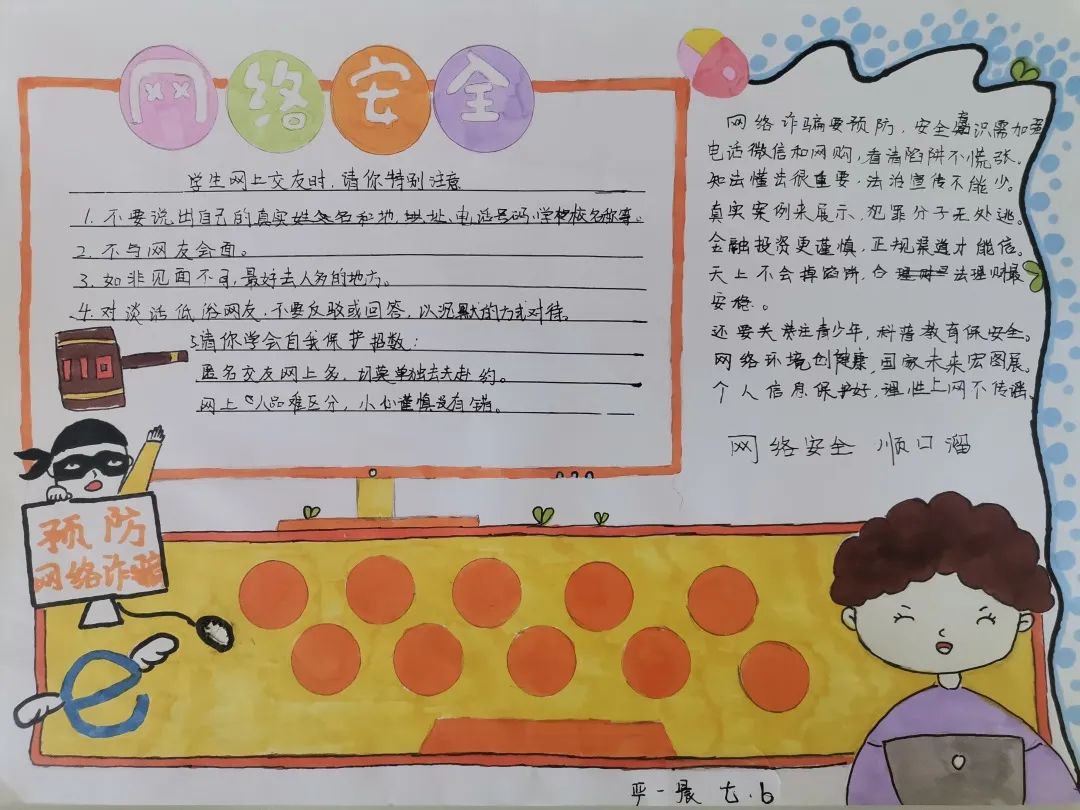 网络安全
学生网上交友时，请你特别注意
1. 不要说出自己的真实姓名和地址、电话号码、学校名称等。
2. 不与网友会面。
3. 如非见面不可，最好去人多的地方。
4. 对谈话低俗网友，不要反驳或回答，以沉默的方式对待。
请你学会自我保护招数：
匿名交友网上名，切莫单独去赴约。
网上人品难区分，小心谨慎没有错。
110
预防
网络诈骗
e
网络诈骗要预防，安全意识需加强
电话微信和网购，看清陷阱不慌张。
知法懂法很重要，法治宣传不能少。
真实案例来展示，犯罪分子无处逃。
金融投资更谨慎，正规渠道才能信。
天上不会掉馅饼，合法理财展
安稳。
还要关注青少年，科普教育保安全。
网络环境创健康，国家未来宏图展。
个人信息保护好，理性上网不传谣。
网络安全 顺口溜
七.6